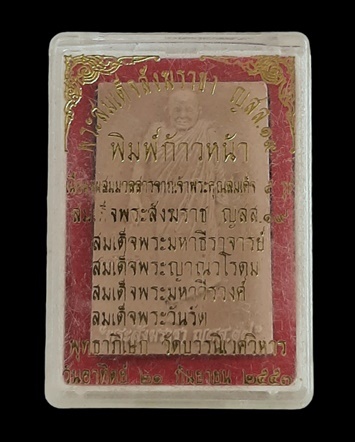 พระสมเด็จสังฆราชา ญสส.๑๙
พิมพ์ก้าวหน้า
เนื้อผงผสมมวลสารจากเจ้าพระคุณสมเด็จ ๕
สมเด็จพระสังฆราช ญสส.๑๙
สมเด็จพระมหาธีราจารย์
สมเด็จพระญาณวโรดม
สมเด็จพระมหาวีรวงศ์
สมเด็จพระวันรัต
พุทธาภิเษก วัดบวรนิเวศวิหาร
วันอาทิตย์ ๒๘ กันยายน ๒๕๕๑